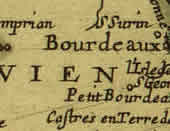 mprian
S Surin
Bourdeaux
VIEN
L'Isle de
S Geor
Petit Bourdeau
Castres en Terre de